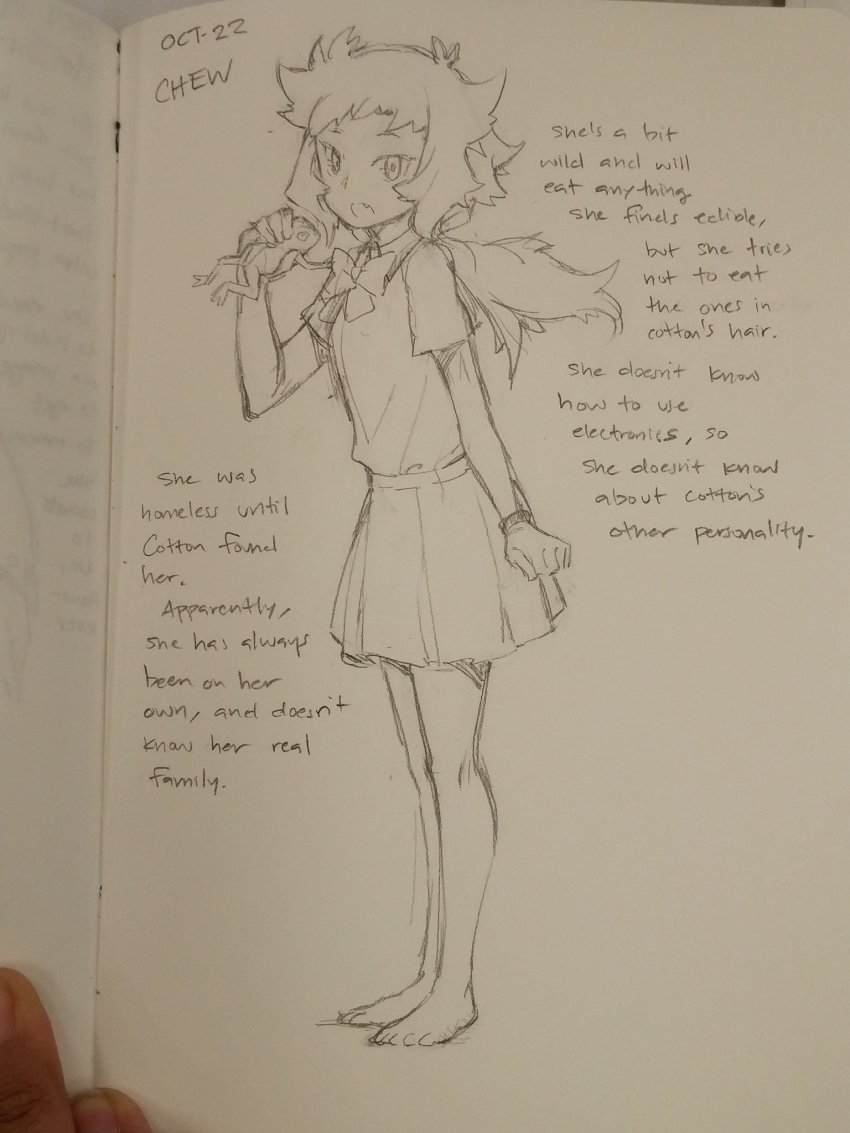 OCT-22
CHEW
She's a bit
wild and will
eat anything
she finds edible,
but she tries
not to eat
the ones in
cotton's hair.
She doesn't know
how to use
electronics, so
she doesn't know
about cotton's
other personality.
She was
homeless until
Cotton found
her.
Apparently,
she has always
been on her
own, and doesn't
know her real
family.